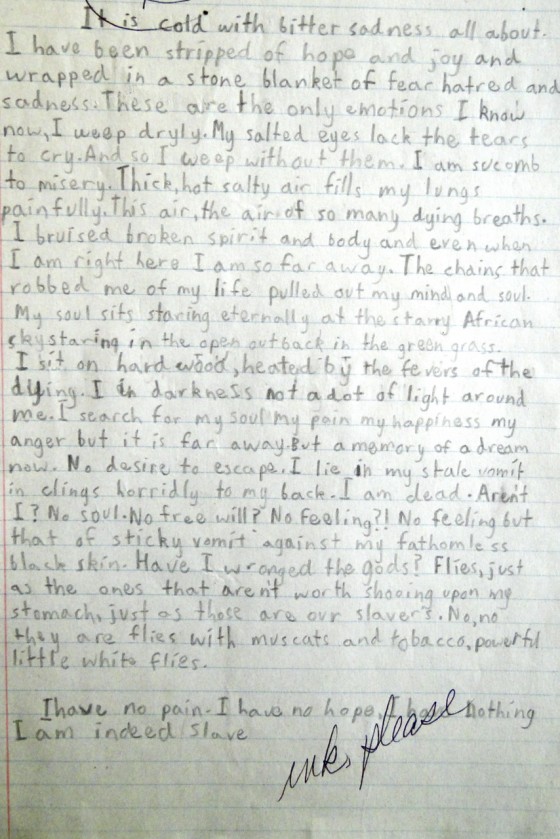 It is cold with bitter sadness all about.
I have been stripped of hope and joy and
wrapped in a stone blanket of fear hatred and
sadness. These are the only emotions I know
now, I weep dryly. My salted eyes lack the tears
to cry. And so I weep without them. I am sucomb
to misery. Thick, hot salty air fills my lungs
painfully. This air, the air of so many dying breaths.
I bruised broken spirit and body and even when
I am right here I am so far away. The chains that
robbed me of my life pulled out my mind and soul.
My soul sits staring eternally at the starry African
sky staring in the open outback in the green grass.
I sit on hard wood, heated by the fevers of the
dying. I in darkness not a dot of light around
me. I search for my soul my pain my happiness my
anger but it is far away. But a memory of a dream
now. No desire to escape. I lie in my stale vomit
in clings horridly to my back. I am dead. Arent
I? No soul. No free will? No feeling?! No feeling but
that of sticky vomit against my fathomless
black skin. Have I wronged the gods? Flies, just
as the ones that aren't worth shooing upon my
stomach, just as those are our slavers. No, no
they are flies with muscats and tobacco, powerful
little white flies.
I have no pain. I have no hope. I have Nothing
I am indeed Slave
ink, please